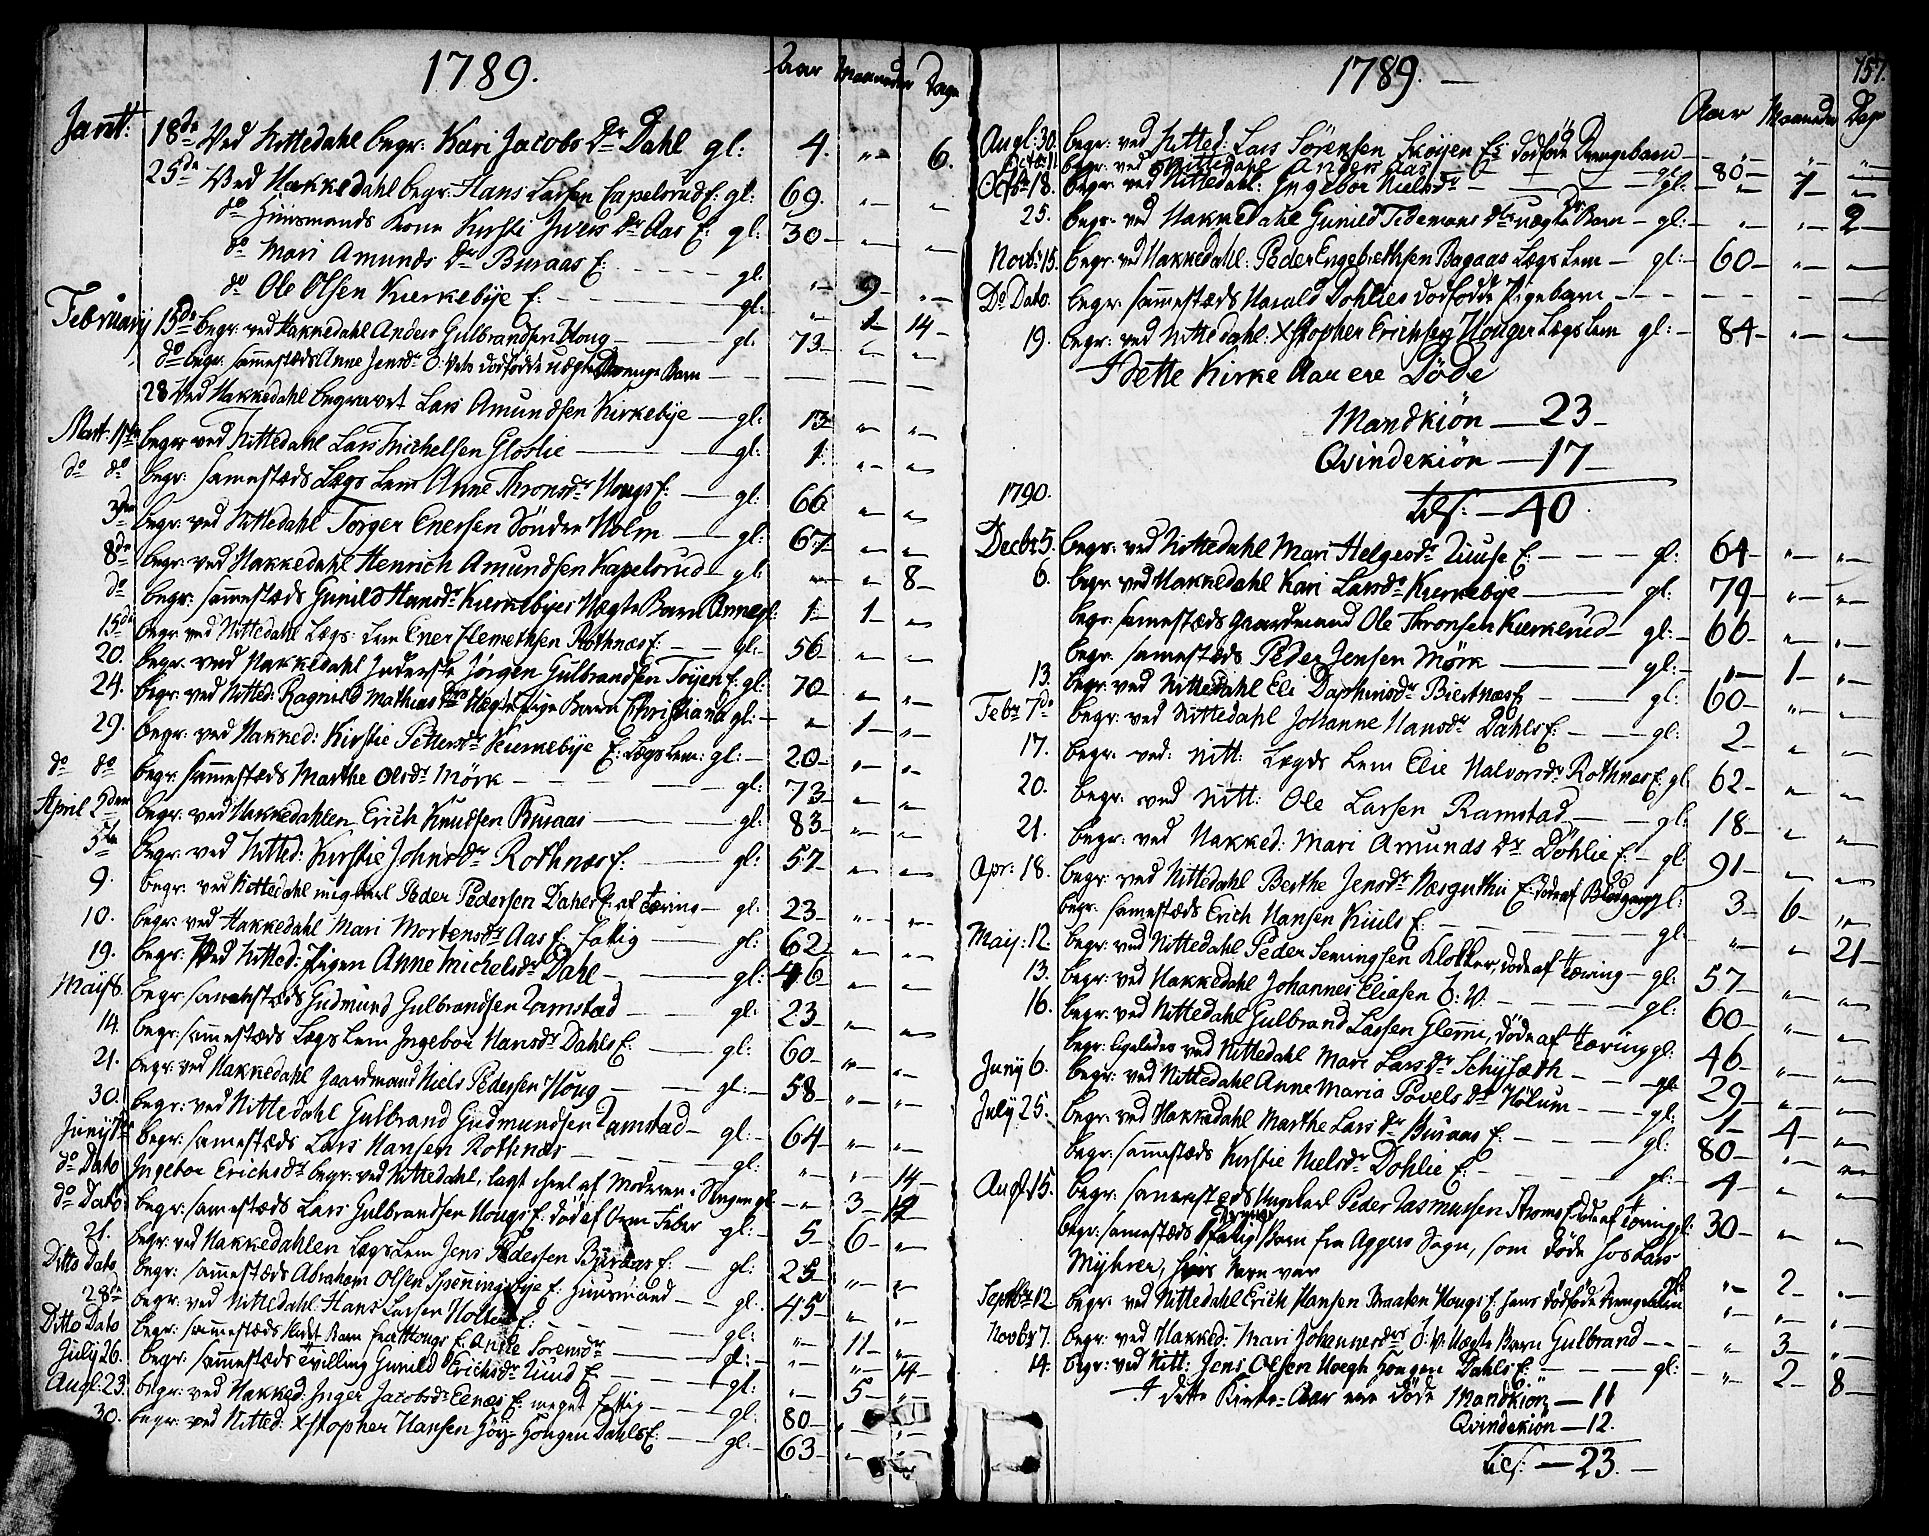 1789.
Aar Maaneder Dage
Janu: 18de Ved Nittedahl begr: Kari Jacobs Dr Dahl gl: 4. " 6.
25de Ved Hakkedahl begr: Hans Larsen Capelsrud E: gl: 69. " "
do Huusmands Kone Kirsti Ivers Dr Aas E: gl: 30 " "
do Mari Amunds Dr Buraas E: gl: " 9 "
do Ole Olsen Kierkebye E: gl: " 1 14
February 15de begr: ved Hakkedahl Anders Gulbrandsen Houg gl: 73 " "
do begr: samestæds Anne Jensdr O: Vets dødfødde uægte Drenge Barn
28 Ved Hakkedahl begravet Lars Amundsen Kirkebye gl: 13 " "
Mart: 1ste begr ved Nittedahl Lars Michelsen Gloslie gl: 1 " "
do do begr: samestæds Lægs Lem Anne Thronsdr Hougs E: gl: 66 " "
3die begr: ved Nittedahl Torger Enersen Söndre Holm gl: 67 " "
8de begr: ved Hakkedahl Henrich Amundsen Kapelsrud gl: " " 8
do begr: samestæds Gunild Hansdr Kierkebyes Uægte Barn Anne gl: 1 1 "
15de begr ved Nittedahl Lægs: Lem Ener Clemethsen Rothnæs E: gl: 56 " "
20. begr. ved Hakkedahl Inderst Jørgen Gulbrandsen Töyen E: gl: 70 " "
24. begr: ved Nitted: Ragnild Mathias Drs Uægte Pige Barn Christiana gl: " 1 "
29. begr: ved Hakked: Kirstie Pettersdr Kierkebye E: Lægs Lem: gl: 20 " "
do do begr: samestæds Marthe Olsdr Mörk gl: 73 " "
April 2den begr: ved Hakkedahlen Erich Knudsen Buraas gl: 83 " "
5te begr: ved Nitted: Kirstie Johnsdr Rothnæs E: gl: 57 " "
9. begr: ved Nittedahl ungkarl Peder Pedersen Dahls E: af Tæring gl: 23 " "
10. begr: ved Hakkedahl Mari Mortensdr Aas E: fattig gl: 62 " "
19. begr: Ved Nitted: Pigen Anne Michelsdr Dahl gl: 46 " "
Maij 8. begr samestæds Gudmund Gulbrandsen Ramstad gl: 23 " "
14. begr: samestæds Lægs Lem Ingebor Hansdr Dahls E: gl: 60 " "
21. begr: ved Hakkedahl Gaardmand Niels Pedersen Houg gl: 58 " "
30. begr: ved Nittedahl Gulbrand Gudmundsen Ramstad gl: 64 " "
Junij 1ste begr: samestæds Lars Hansen Rothnæs gl: " " 14
do Dato Ingebor Erichsdr begr: ved Nittedahl, lagt ihiel af Moderen i Sengen gl " 3 14
do Dato begr: samestæds Lars Gulbrandsen Hougs E: död af Orm Feber gl: 5 6 "
21. begr: ved Hakkedahlen Lægs Lem Jens Pedersen Buraas E: gl: 25 " "
Ditto Dato begr: samestæds Abraham Olsen Spenningsbye E: Huusmand gl: 45 " "
28de begr: ved Nittedahl: Hans Larsen Holter E: gl: " 11 "
Ditto Dato begr: samestæds Barn fra Hougs E: Anne Sörensdr gl: " " 14
July 26. begr: samestæds Tvilling Gunild Erichsdr Tuud E: gl: " 5 "
Augl: 23. begr: ved Hakked: Inger Jacobsdr Eenæs E: meget fattig gl: 80 " "
30. begr: ved Nitted: Xstopher Hansen Höy: Hougen Dahls E: gl: 63 "
1789. 157.
Aar Maaneder Dage
Augl: 30. begr: ved Nitted: Lars Sörensen Skoyen E: dødföde Drengebarn " " "
begr: ved Nittedahl Anders Aas gl: 80 " "
Octb: 18. begr: ved Nittedahl: Ingebor Nielsdr gl: " 7 "
25. begr: ved Hakkedahl Gunild Tidemans Dtrs uægte Barn gl: " " 2
Novb: 15. begr: ved Hakkedahl: Peder Engebrethsen Bagaas Lægs Lem gl: 60 " "
Do Dato. begr: samestæds Harald Dohlies dødfødde Pigebarn
19. begr: ved Nittedahl: Xstopher Erichsen Hougen Lægs Lem gl: 84 " "
I dette Kirke Aar ere Døde
Mandkiön 23
Qvindekiön 17
1790. tils: 40.
Decbr 5. begr: ved Nittedahl Mari Helgesdr Tuuse E: gl: 64 " "
6. begr: ved Hakkedahl Kari Larsdr Kierkebye gl: 79 " "
begr: samestæds Gaardmand Ole Thronsen Kierkerud gl: 66 " "
begr: samestæds Peder Jensen Mörk gl: " 1 "
13. begr: ved Nittedahl Eli Dapthinsdr Biertnæs E gl: 60 " "
Febr 7de begr: ved Nittedahl Johanne Hansdr Dahls E: gl: 2 " "
17. begr: ved: Nitt: Lægds Lem Elie Halvorsdr Rothnæs E: gl 62 " "
20. begr: ved Nitt: Ole Larsen Ramstad gl: 18 " "
21. begr: ved Hakked: Mari Amunds Dr Döhlie E: gl: 91 " "
Apr: 18. begr: ved Nittedahl Berthe Jensdr Næsguthu E: døde af Blodgang gl: 3 6 "
begr: samestæds Erich Hansen Kiuls E: gl: " " 21
Maij: 12. begr: ved Nittedahl Peder Semingsen Klokker, døde af Tæring gl: 57 " "
13. begr: ved Hakkedahl Johannes Eliasen O: V. gl: 60 " "
16. begr: ved Nittedahl Gulbrand Larsen Glemi, døde af Tæring gl: 46 " "
begr: ligeledes ved Nittedahl Mari Lars Dr Schyseth gl 29 " "
Juny 6. begr: ved Nittedahl Anne Maria Povels Dr Hölum gl: 1 4 "
July 25. begr: ved Hakkedahl Marthe Lars Dr Buraas E: gl: 80 " "
begr: samestæds Kirstie Nielsdr Dohlie E: gl: 4 " "
Augst 15. begr: samestæds Ungkarl Peder Rasmussen Strøms E: døde af Tæring gl: 30 " "
begr: samestæds fattig Barn fra Aggers Sogn, som döde hos Lars
Myhrer, hvis Navn var gl: " 2 "
Septbr 12. begr: ved Nittedahl Erich Hansen Braaten Hougs E: hans dødföde Drengebarn " " "
Novbr 7. begr: ved Hakked: Mari Johannesdrs O: V: Uægte Barn Gulbrand " 3 "
14. begr: ved Nitt: Jens Olsen Hoegh Hougen Dahls E: gl: " 2 8
I dette Kirke-Aar ere döde Mandkiön 11
Qvindekiön 12.
tils: 23.